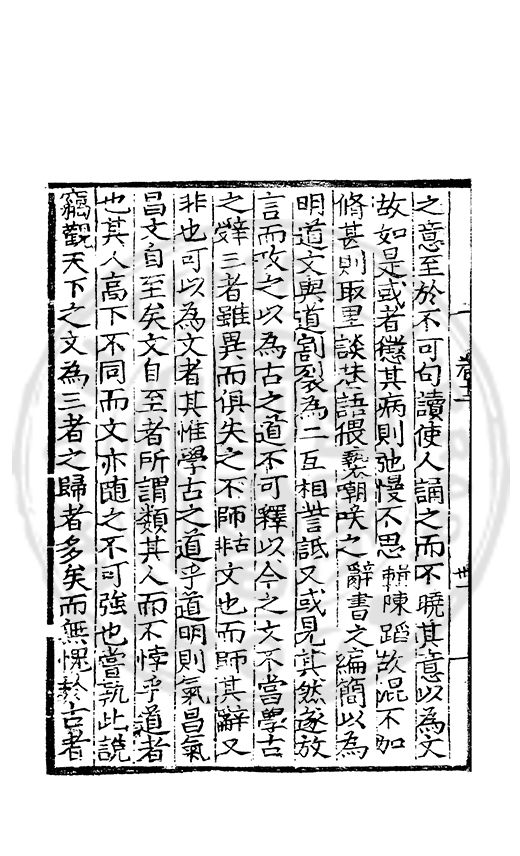 之意至於不可句讀使人誦之而不曉其意以為文
故如是或者懲其病則弛慢不思輯陳蹈故混不加
脩甚則取里談巷語猥褻嘲咲之辭書之編簡以為
明道文與道割裂為二互相訾詆又或見其然遂放
言而攻之以為古之道不可釋以今之文不當學古
之辭三者雖異而俱失之不師古非文也而師其辭又
非也可以為文者其惟學古之道乎道明則氣昌氣
昌文自至矣文自至者所謂類其人而不悖乎道者
也其人高下不同而文亦隨之不可強也嘗執此說
竊觀天下之文為三者之歸者多矣而無愧於古者